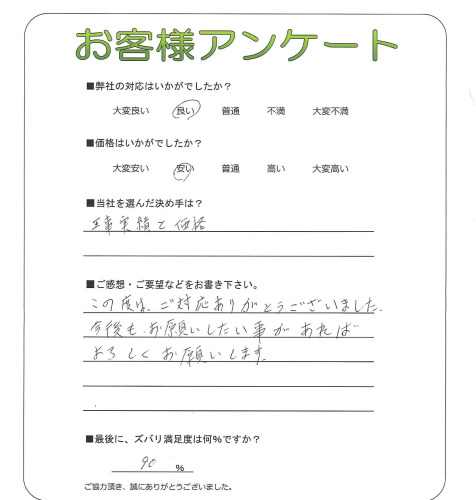 お客様アンケート
■弊社の対応はいかがでしたか？
大変良い 良い 普通 不満 大変不満
■価格はいかがでしたか？
大変安い 安い 普通 高い 大変高い
■当社を選んだ決め手は？
工事実績と価格
■ご感想・ご要望などをお書き下さい。
この度は、ご対応ありがとうございました。
今後も、お願いしたい事があれば
よろしくお願いします。
■最後に、ズバリ満足度は何％ですか？
90 ％
ご協力頂き、誠にありがとうございました。